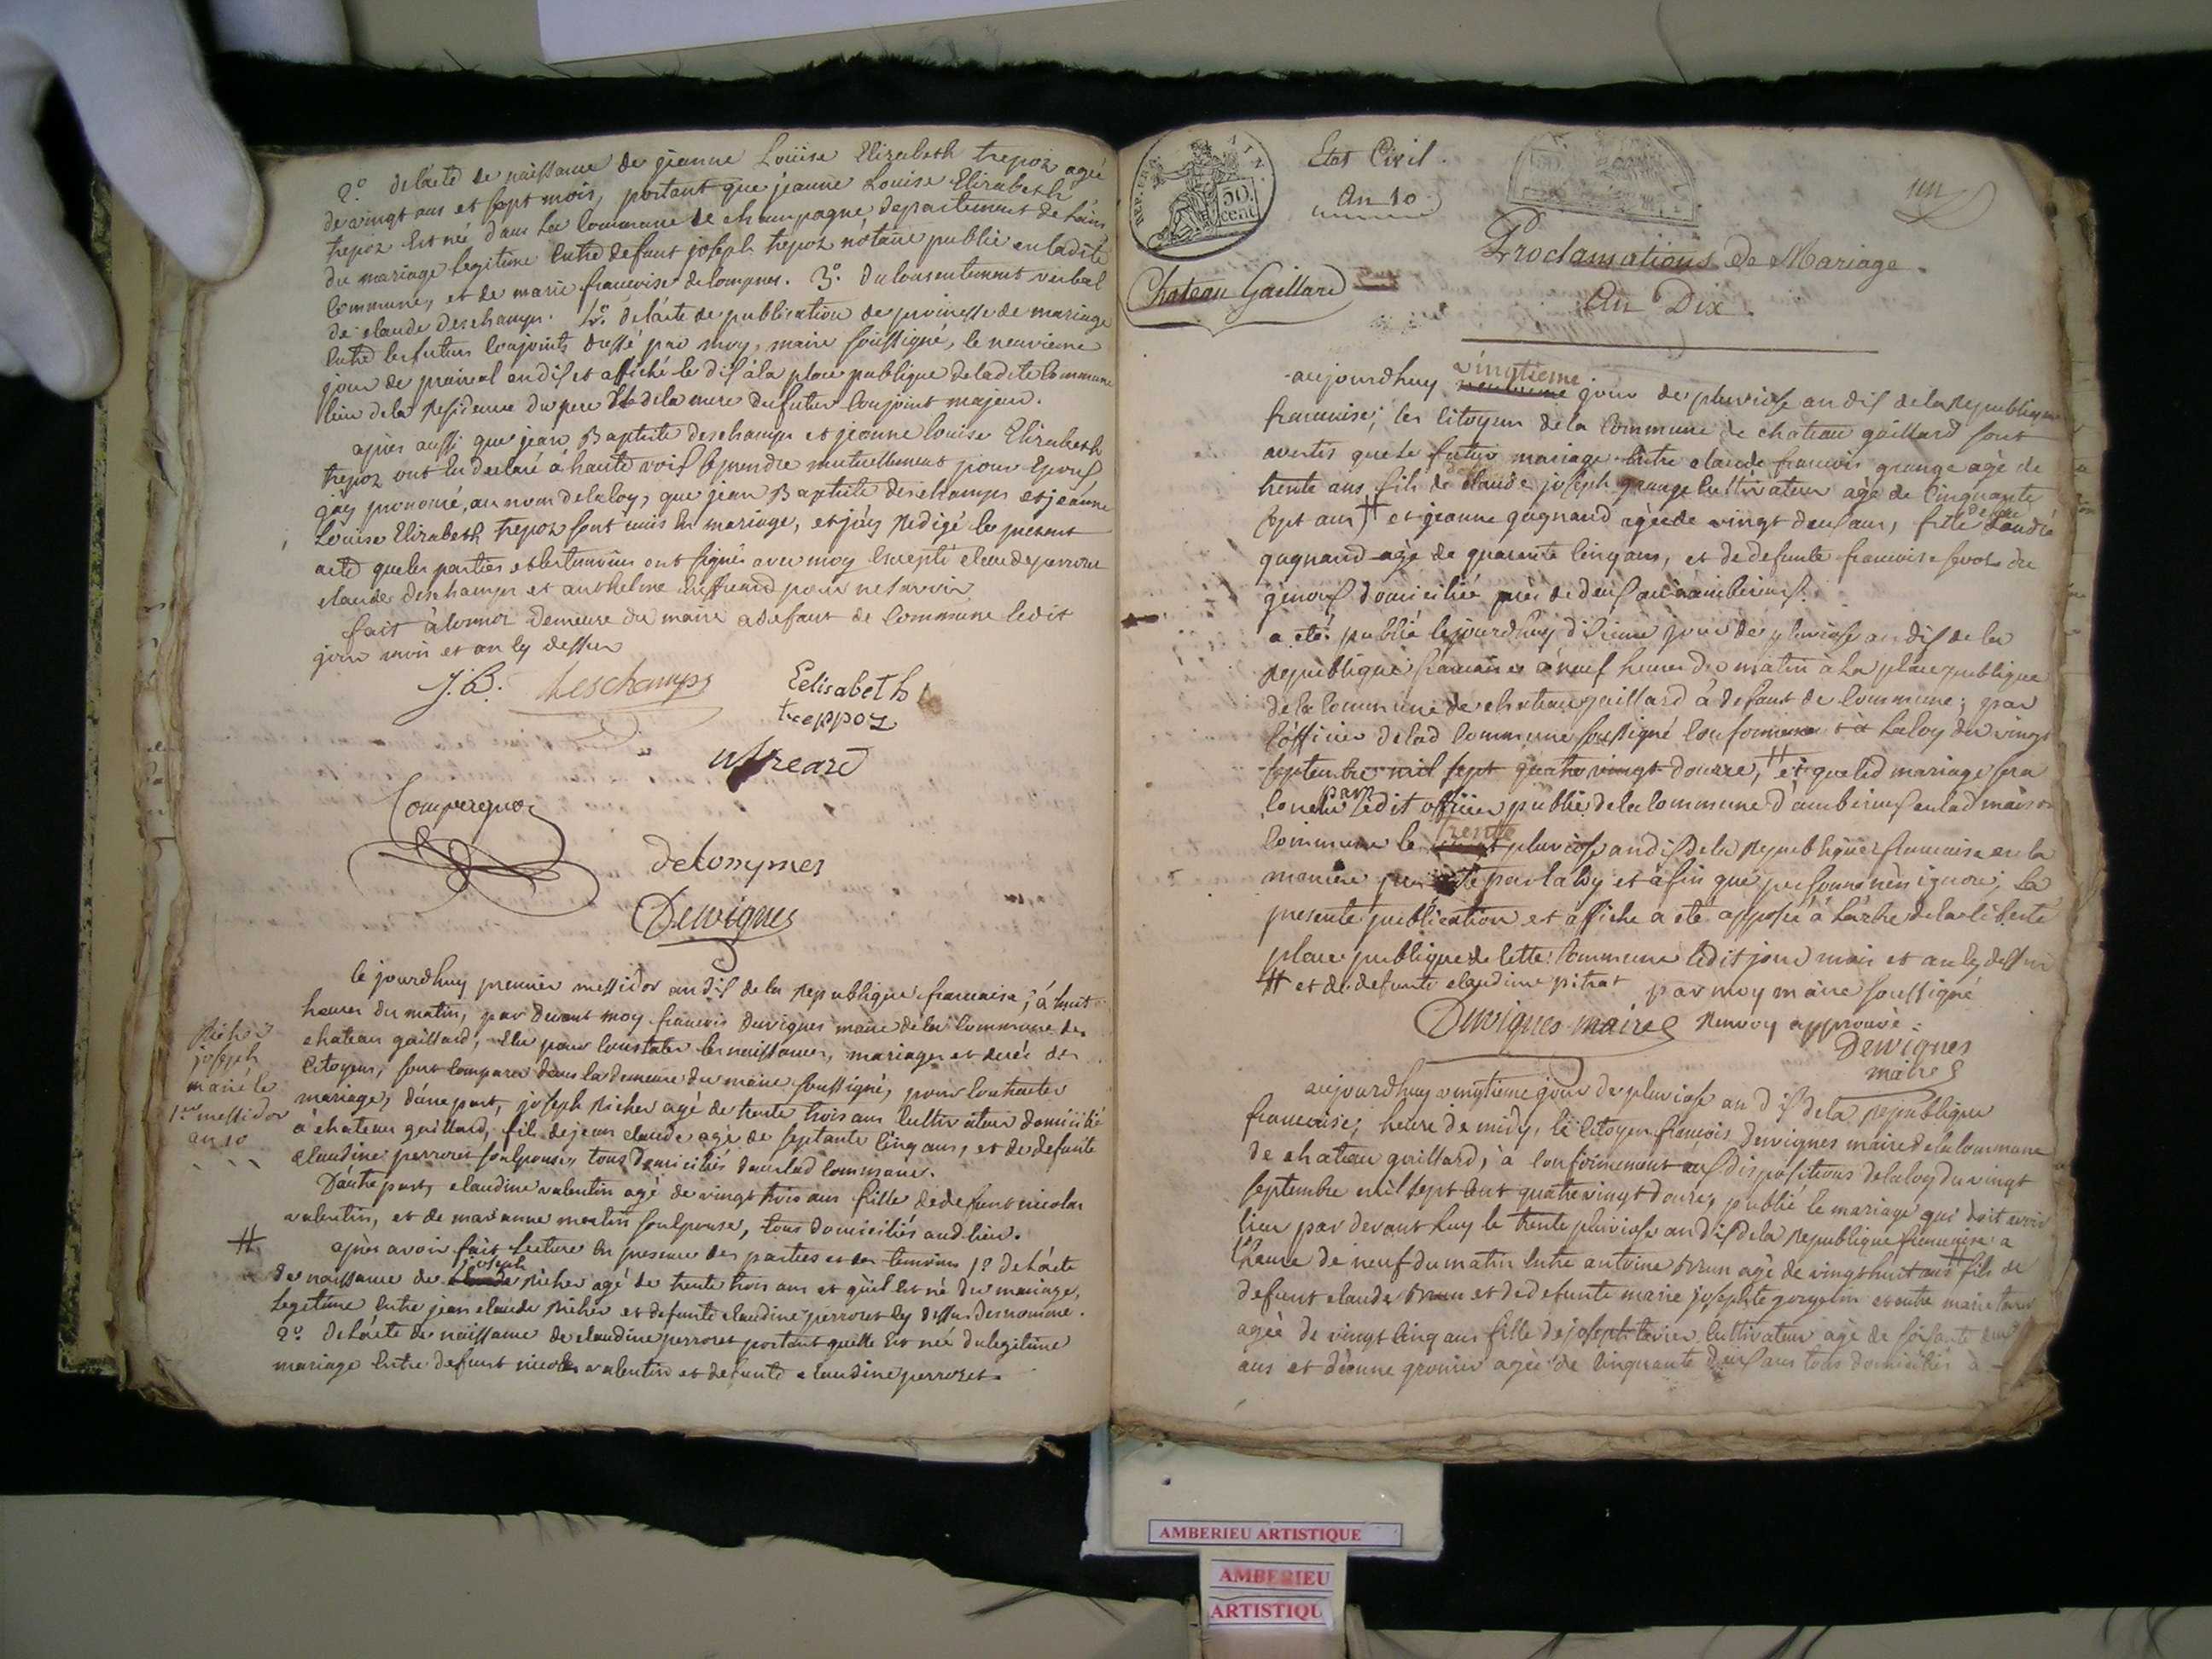 2.° de l'acte de naissance de jeanne Loüise Elizabeth trepoz agé
de vingt ans et sept mois, portant que jeanne Louise Elizabeth
trepoz Est née dans La Commune de champagne, departement de l'ain
du mariage legitime Entre defunt joseph trepoz notaire public en ladite
Commune, et de marie francoise delompnes. 3.° du Consentement verbal
de claude deschamps. 4.° de l'acte de publication de promesse de mariage
Entre les futurs Conjoints dressé par moy, maire soussigné, le neuvieme
jour de prairial an dix et affiché le dix à la place publique de ladite Commune
lieu de la Residence du pere et de la mere du futur Conjoint majeur.
après aussi que jean Baptiste deschamps et jeanne louise Elizabeth
trepoz ont Eu declaré à haute voix se prendre mutuellement pour Epoux
j'ay prononcé, au nom de la loy, que jean Baptiste deschamps et jeanne
Louise Elizabeth trepoz sont unis En mariage, et j'ay Redigé le present
acte que les parties et les temoins ont signés avec moy Excepté
claude deschamps et anthelme pour ne savoir
fait à demeure du maire a defaut de Commune ledit
jour mois et an cy dessus
J.B. deschamps
Eelisabeth
treppoz
Compergnoz
delompnes
Dervignes
Ce jourdhuy premier messidor an dix de la Republique francaise, à huit
heures du matin, par devant moy francois dervignes maire de la Commune de
chateau gaillard, Elu pour Constater les naissances, mariages et decés des
Citoyens, sont Comparu dans la demeure du maire soussigné, pour Contracter
mariage, d'une part, joseph Richer agé de trente trois ans Cultivateur domicilié
à chateau gaillard, fils de jean claude agé de septante Cinq ans, et de defunte
Claudine perrozet son Epouse, tous domiciliés dans lad Commune.
D'autre part, claudine valentin agé de vingt trois ans fille de defunt nicolas
valentin, et de marianne martin son Epouse, tous domiciliés aud. lieu.
Richer
joseph
marié le
1.er messidor
an 10
# après avoir fait Lecture En presence des parties et des temoins 1.° de l'acte
de naissance de joseph Richer agé de trente trois ans et qu'il Est né du mariage
legitime Entre jean claude Richer et defunte claudine perrozet cy dessus denommé.
2.° de l'acte de naissance de claudine perrozet portant qu'elle Est née du legitime
mariage Entre defunt nicolas valentin et defunte claudine perrozet.
REP. FRA. AIN.
50.
cent
Etat Civil.
An 10
un
Chateau Gaillard
Proclamations de Mariage.
An Dix.
aujourdhuy vingtieme jour de pluviose an dix de la Republique
francaise; les Citoyens de la Commune de chateau gaillard sont
avertis que le futur mariage Entre claude francois grange agé de
trente ans fils de claude joseph grange Cultivateur agé de Cinquante
sept ans # et jeanne gagnand agée de vingt deux ans, fille de feu andré
gagnand agé de quarante Cinq ans, et de defunte francoise du
genoux domiciliée près de deux an à ambérieux.
a eté publié Cejourdhuy dixieme jour de pluviose an dix de la
Republique francaise à neuf heures du matin à la place publique
de la Commune de chateau gaillard à defaut de Commune; par
l'officier de lad Commune soussigné Conformement à la loy du vingt
septembre mil sept quatre vingt douze, # et que led mariage sera
Conclu par ledit officier public de la Commune d'amberieux en lad maison
Commune le trente pluviose an dix de la Republique francaise en la
maniere par la loy et à fin que personne n'en ignore, La
presente publication et affiche a eté apposée à l'arbre de la liberté
place publique de Cette Commune ledit jour mois et an cy dessus
# et de defunte claudine pitrat par moy maire soussigné
Dervignes maire Renvoy approuvé:
Dervignes
maire
aujourdhuy vingtieme jour de pluviose an dix de la Republique
francaise; heure de midy, le Citoyen francois Dervignes maire de la Commune
de chateau gaillard, à Conformement aux dispositions de la loy du vingt
septembre mil sept Cent quatre vingt douze, publié le mariage qui doit avoir
lieu par devant Luy le trente pluviose an dix de la Republique francaise a
l'heure de neuf du matin Entre antoine Brun agé de vingt huit ans # fils de
defunt claude Brun et de defunte marie josephte et entre marie
agée de vingt Cinq ans fille de joseph Cultivateur agé de soixante deux
ans et d'anne agée de Cinquante deux ans tous domiciliés à
AMBERIEU ARTISTIQUE
AMBERIEU
ARTISTIQU